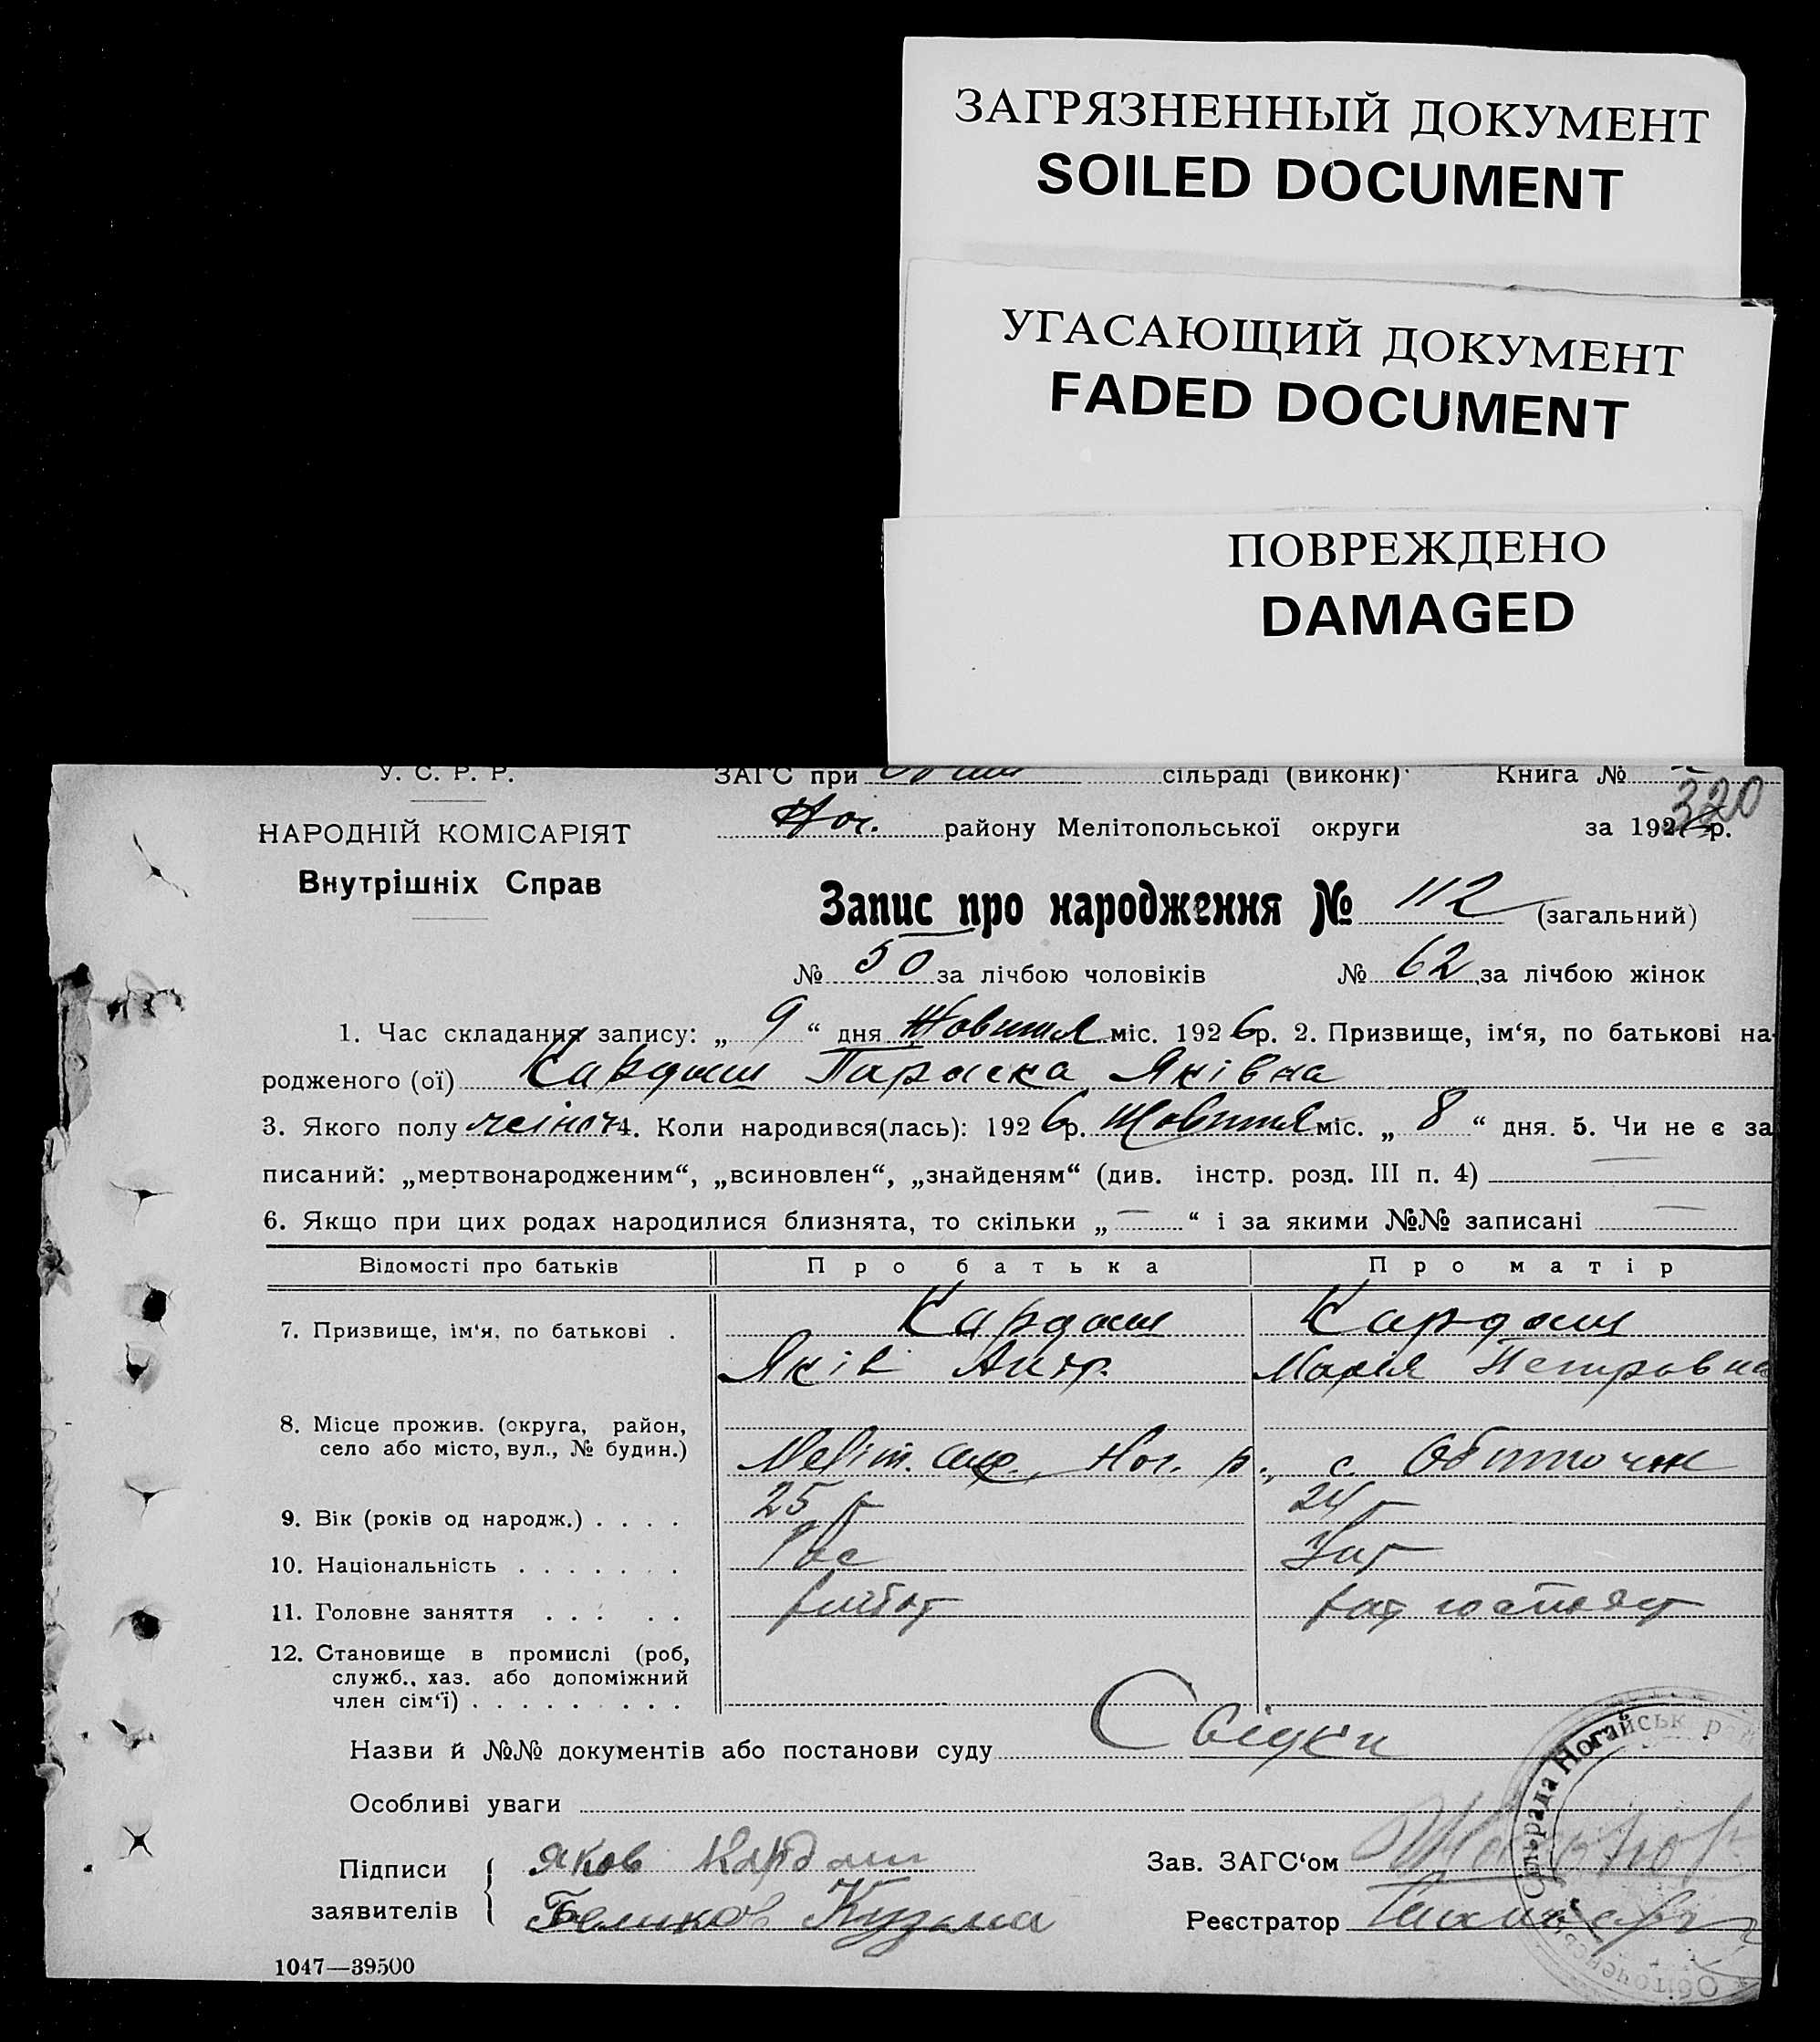 ЗАГРЯЗНЕННЫЙ ДОКУМЕНТ
SOILED DOCUMENT
УГАСАЮЩИЙ ДОКУМЕНТ
FADED DOCUMENT
ПОВРЕЖДЕНО
DAMAGED
У. С. Р. Р. ЗАГС при сільраді (виконк) Книга №
320
НАРОДНІЙ КОМІСАРІЯТ Ног. району Мелітопольської округи за 1926 р.
Внутрішніх Справ
Запис про народження № 112 (загальний)
№ 50 за лічбою чоловіків № 62 за лічбою жінок
1. Час складання запису: „ 9 “ дня Жовтня міс. 1926 р. 2. Призвище, ім‘я, по батькові на-
родженого (ої) Кардаш Параска Яківна
3. Якого полу жіноч 4. Коли народився(лась): 1926 р. Жовтня міс. „ 8 “ дня. 5. Чи не є за
писаний: „мертвонародженим“, „всиновлен“, „знайденям“ (див. інстр. розд. III п. 4) —
6. Якщо при цих родах народилися близнята, то скільки „ — “ і за якими №№ записані —
Відомості про батьків Про батька Про матір
7. Призвище, ім‘я, по батькові . Кардаш Кардаш
Яків Андр. Марія Петровна
8. Місце прожив. (округа, район,
село або місто, вул., № будин.) Меліт. окр., Ног. р., с. Обиточн
9. Вік (років од народж.) . . . . 25 р 24 р
10. Національність . . . . . . . Рос Укр
11. Головне заняття . . . . . хлібор
12. Становище в промислі (роб,
служб., хаз. або допоміжний
член сім‘ї) . . . . . . . . .
Назви й №№ документів або постанови суду Свідки
Особливі уваги
Підписи Яков Кардаш Зав. ЗАГС‘ом
заявителів Беликов Кузьма Реєстратор
Обіточенськ Сільрада Ногайськ рай
1047—39500